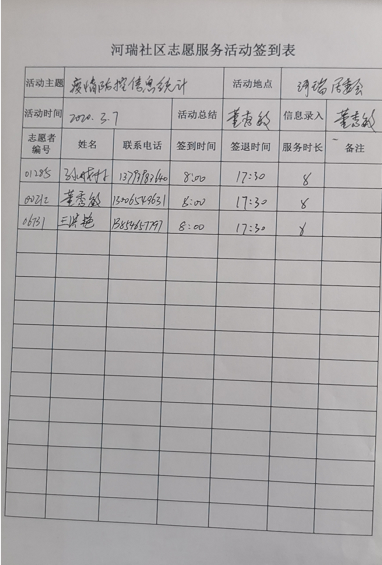 河瑞社区志愿服务活动签到表
活动主题 疫情防控信息统计 活动地点 河瑞居委会
活动时间 2020.3.7 活动总结 董秀敏 信息录入 董秀敏
志愿者编号 姓名 联系电话 签到时间 签退时间 服务时长 备注
01285 8:00 17:30 8
董秀敏 13006549631 8:00 17:30 8
06731 13854657797 8:00 17:30 8